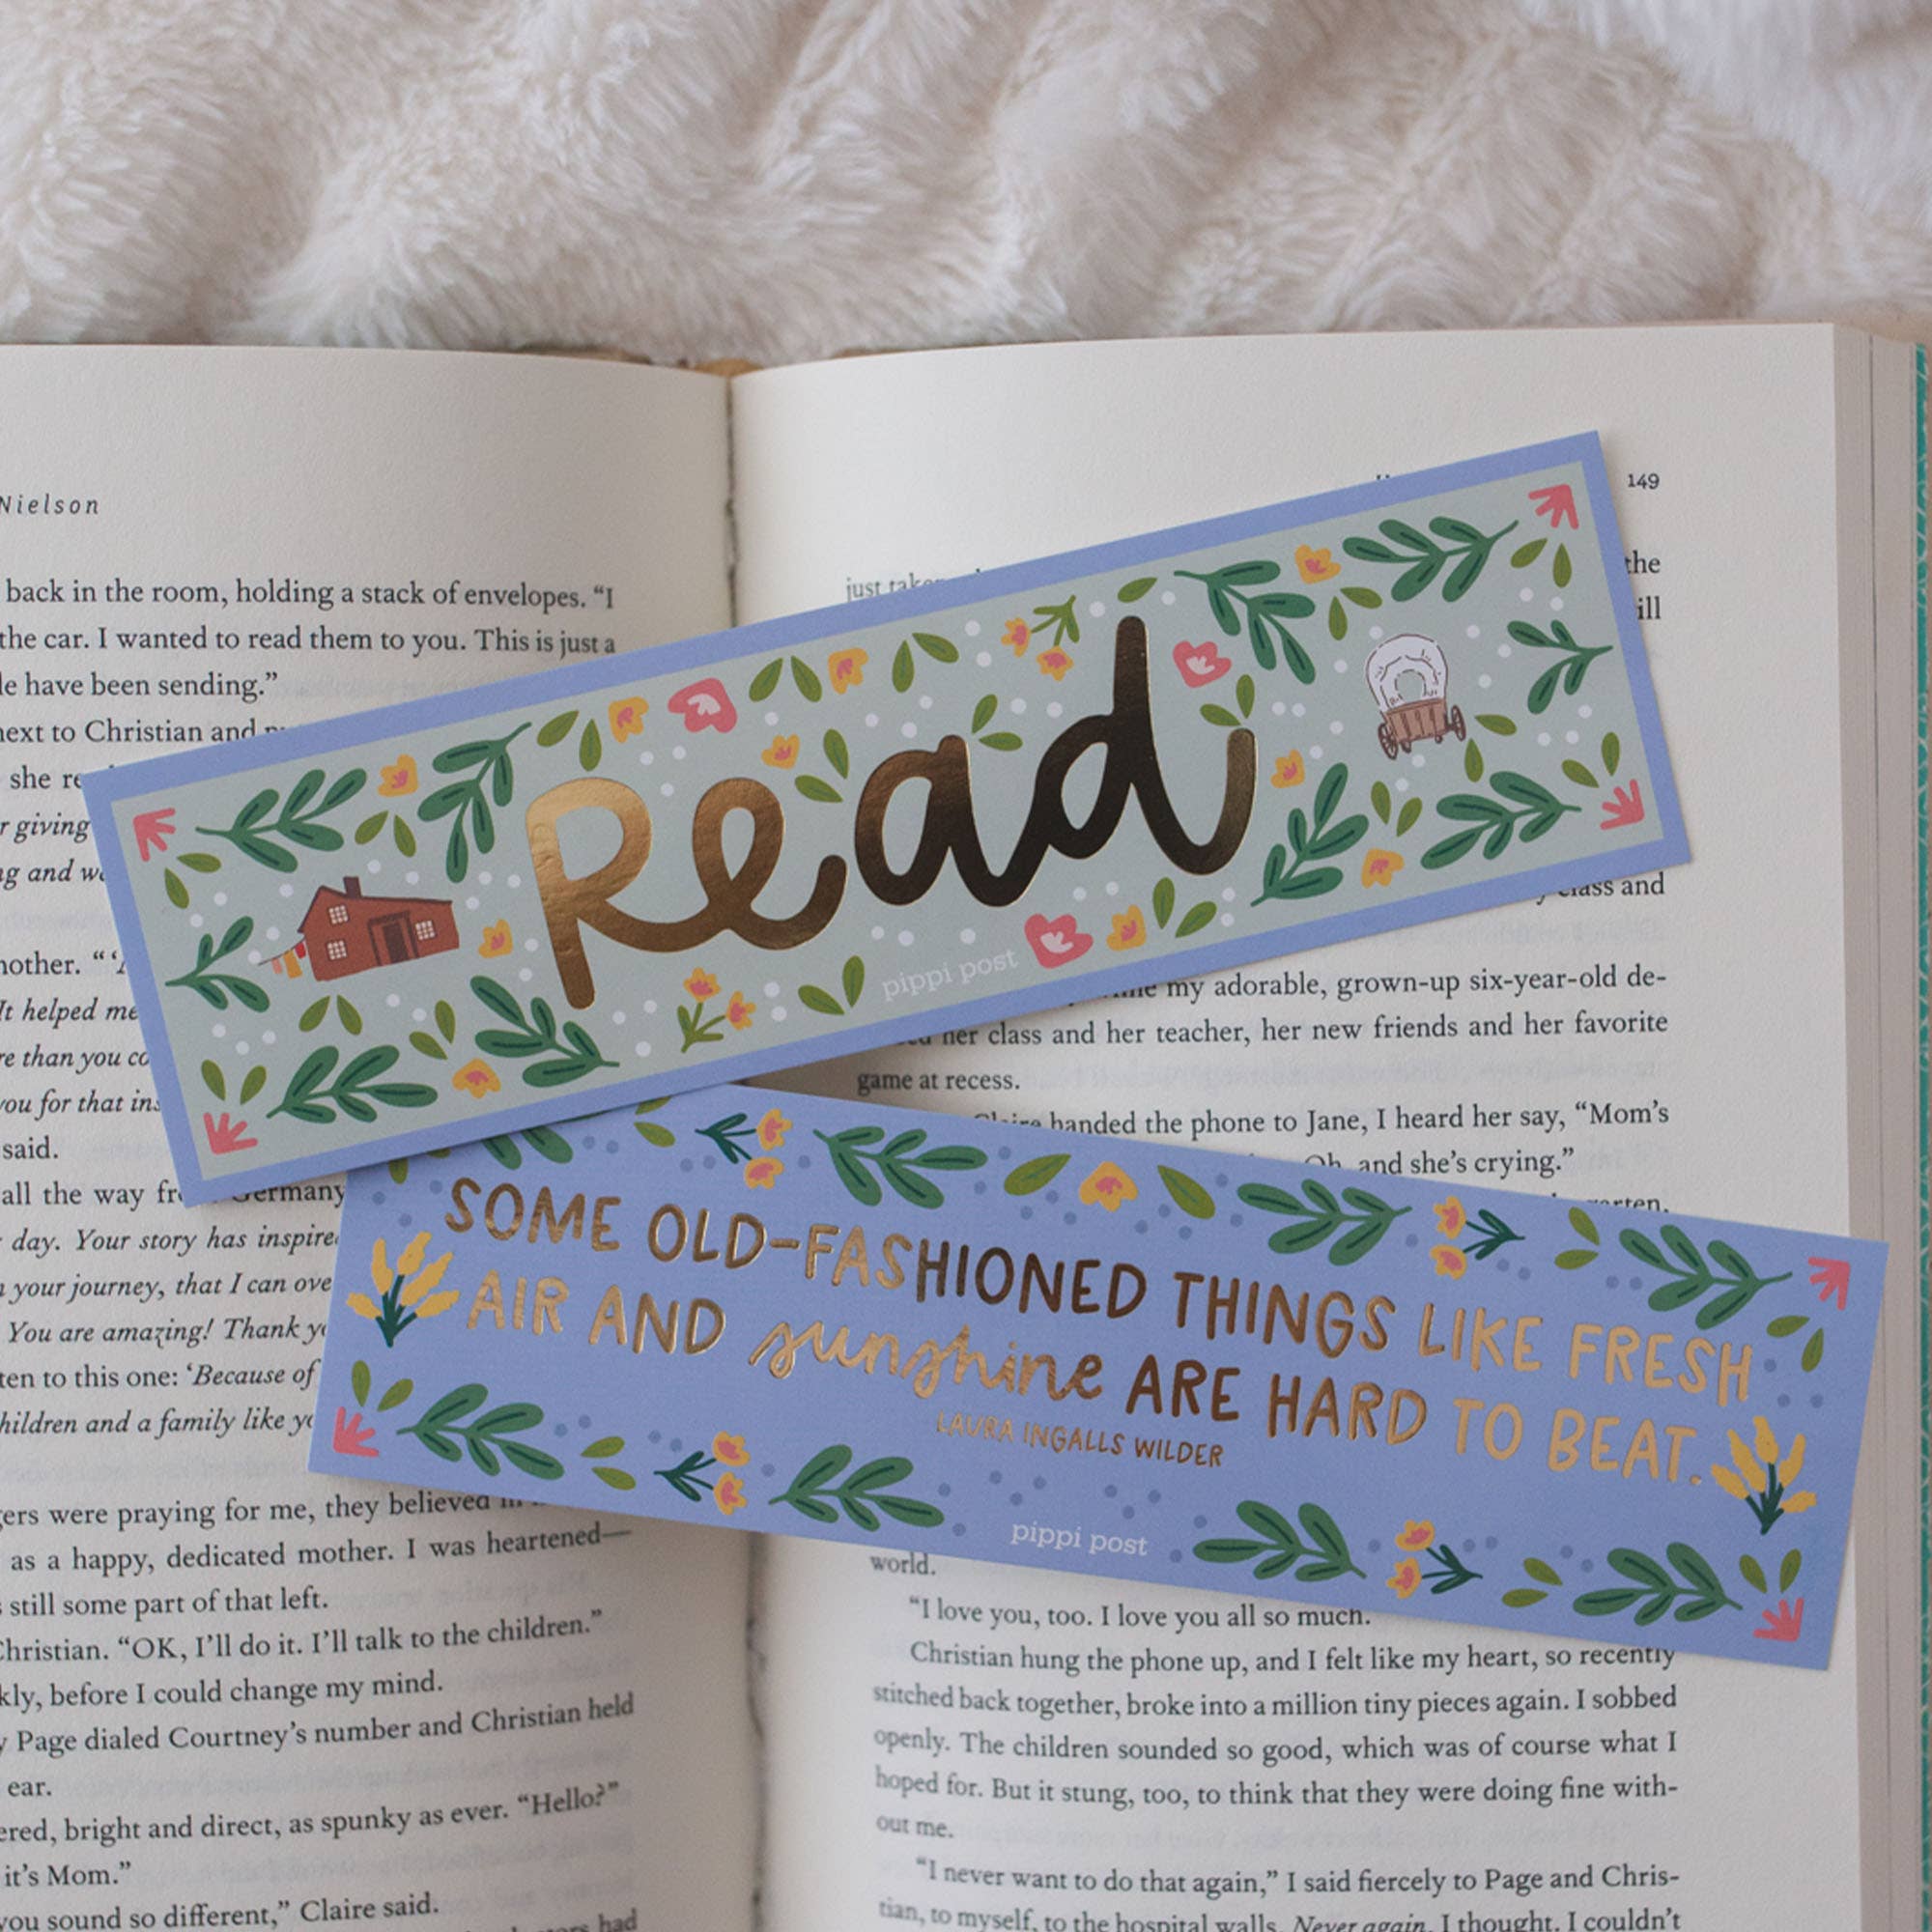 Nielson
back in the room, holding a stack of envelopes. “I
the car. I wanted to read them to you. This is just a
have been sending.”
next to Christian and
she
giving
and
mother. “‘
It helped me
than you
you for that
said.
all the way Germany
day. Your story has
your journey, that I can
You are amazing! Thank
to this one: ‘Because of
children and a family like
were praying for me, they believed
as a happy, dedicated mother. I was heartened—
still some part of that left.
Christian. “OK, I’ll do it. I’ll talk to the children.”
before I could change my mind.
Page dialed Courtney’s number and Christian held
ear.
bright and direct, as spunky as ever. “Hello?”
it’s Mom.”
you sound so different,” Claire said.
had
149
just
the
class and
my adorable, grown-up six-year-old de-
her class and her teacher, her new friends and her favorite
game at recess.
handed the phone to Jane, I heard her say, “Mom’s
Oh, and she’s crying.”
world.
“I love you, too. I love you all so much.
Christian hung the phone up, and I felt like my heart, so recently
stitched back together, broke into a million tiny pieces again. I sobbed
openly. The children sounded so good, which was of course what I
hoped for. But it stung, too, to think that they were doing fine with-
out me.
“I never want to do that again,” I said fiercely to Page and Chris-
tian, to myself, to the hospital walls. Never again, I thought. I couldn’t
Read
pippi post
SOME OLD-FASHIONED THINGS LIKE FRESH
AIR AND sunshine ARE HARD TO BEAT.
LAURA INGALLS WILDER
pippi post